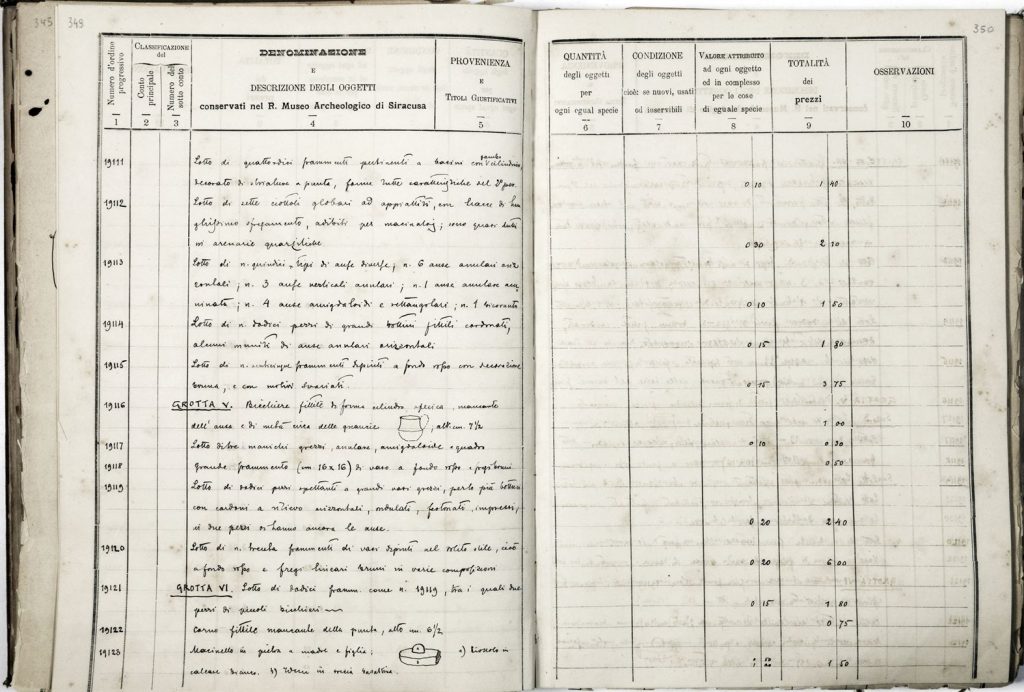 345 349
Numero d'ordine progressivo
CLASSIFICAZIONE
del
Conto principale
Numero del sotto conto
DENOMINAZIONE
E
DESCRIZIONE DEGLI OGGETTI
conservati nel R. Museo Archeologico di Siracusa
PROVENIENZA
E
TITOLI GIUSTIFICATIVI
1 2 3 4 5
19111 Lotto di quattordici frammenti pertinenti a bacini con cilindrico,
decorato di striature a punta, forme tutte caratteristiche del 2° per.
19112 Lotto di sette ciottoli globari ad appiattiti, con tracce di lun
ghissimo sfregamento, adibiti per macinatoj; sono quasi tutti
in arenarie quarzitiche
19113 Lotto di n. quindici tipi di anse diverse; n. 6 anse anulari oriz
zontali; n. 3 anse verticali anulari; n. 1 ansa anulare
minata; n. 4 anse amigdaloidi e rettangolari; n. 1 bicornuta
19114 Lotto di n. dodici pezzi di grandi bottini fittili cordonati,
alcuni muniti di anse anulari orizzontali
19115 Lotto di n. venticinque frammenti dipinti a fondo rosso con decorazione
bruna, e con motivi svariati
19116 GROTTA V. Bicchiere fittile di forma cilindro sferica, mancante
dell'ansa e di metà circa delle , alt. cm. 7 1/2
19117 Lotto di tre manichi grezzi, anulare, amigdaloide e quadro
19118 Grande frammento (cm 16 x 16) di vaso a fondo rosso e fregi bruni
19119 Lotto di dodici pezzi spettanti a grandi vasi grezzi, per lo più bottini
con cordoni a rilievo orizzontali, ondulati, festonati, impressi,
in due pezzi si hanno ancora le anse.
19120 Lotto di n. trenta frammenti di vasi dipinti nel solito stile, cioè
a fondo rosso e fregi lineari bruni in varie composizioni
19121 GROTTA VI. Lotto di dodici framm. come n. 19119, tra i quali due
pezzi di piccoli bicchieri
19122 Corno fittile mancante della punta, alto cm. 6 1/2
19123 Macinello in pietra a madre e figlia; a) Ciottolo in
calcare bianco. b) Idem in roccia basaltina.
350
QUANTITÀ
degli oggetti
per
ogni egual specie
CONDIZIONE
degli oggetti
cioè: se nuovi, usati
od inservibili
VALORE ATTRIBUITO
ad ogni oggetto
ed in complesso
per le cose
di eguale specie
TOTALITÀ
dei
prezzi
OSSERVAZIONI
6 7 8 9 10
0 10 1 40
0 30 2 10
0 10 1 50
0 15 1 80
0 15 3 75
1 00
0 10 0 30
0 50
0 20 2 40
0 20 6 00
0 15 1 80
0 75
1 50